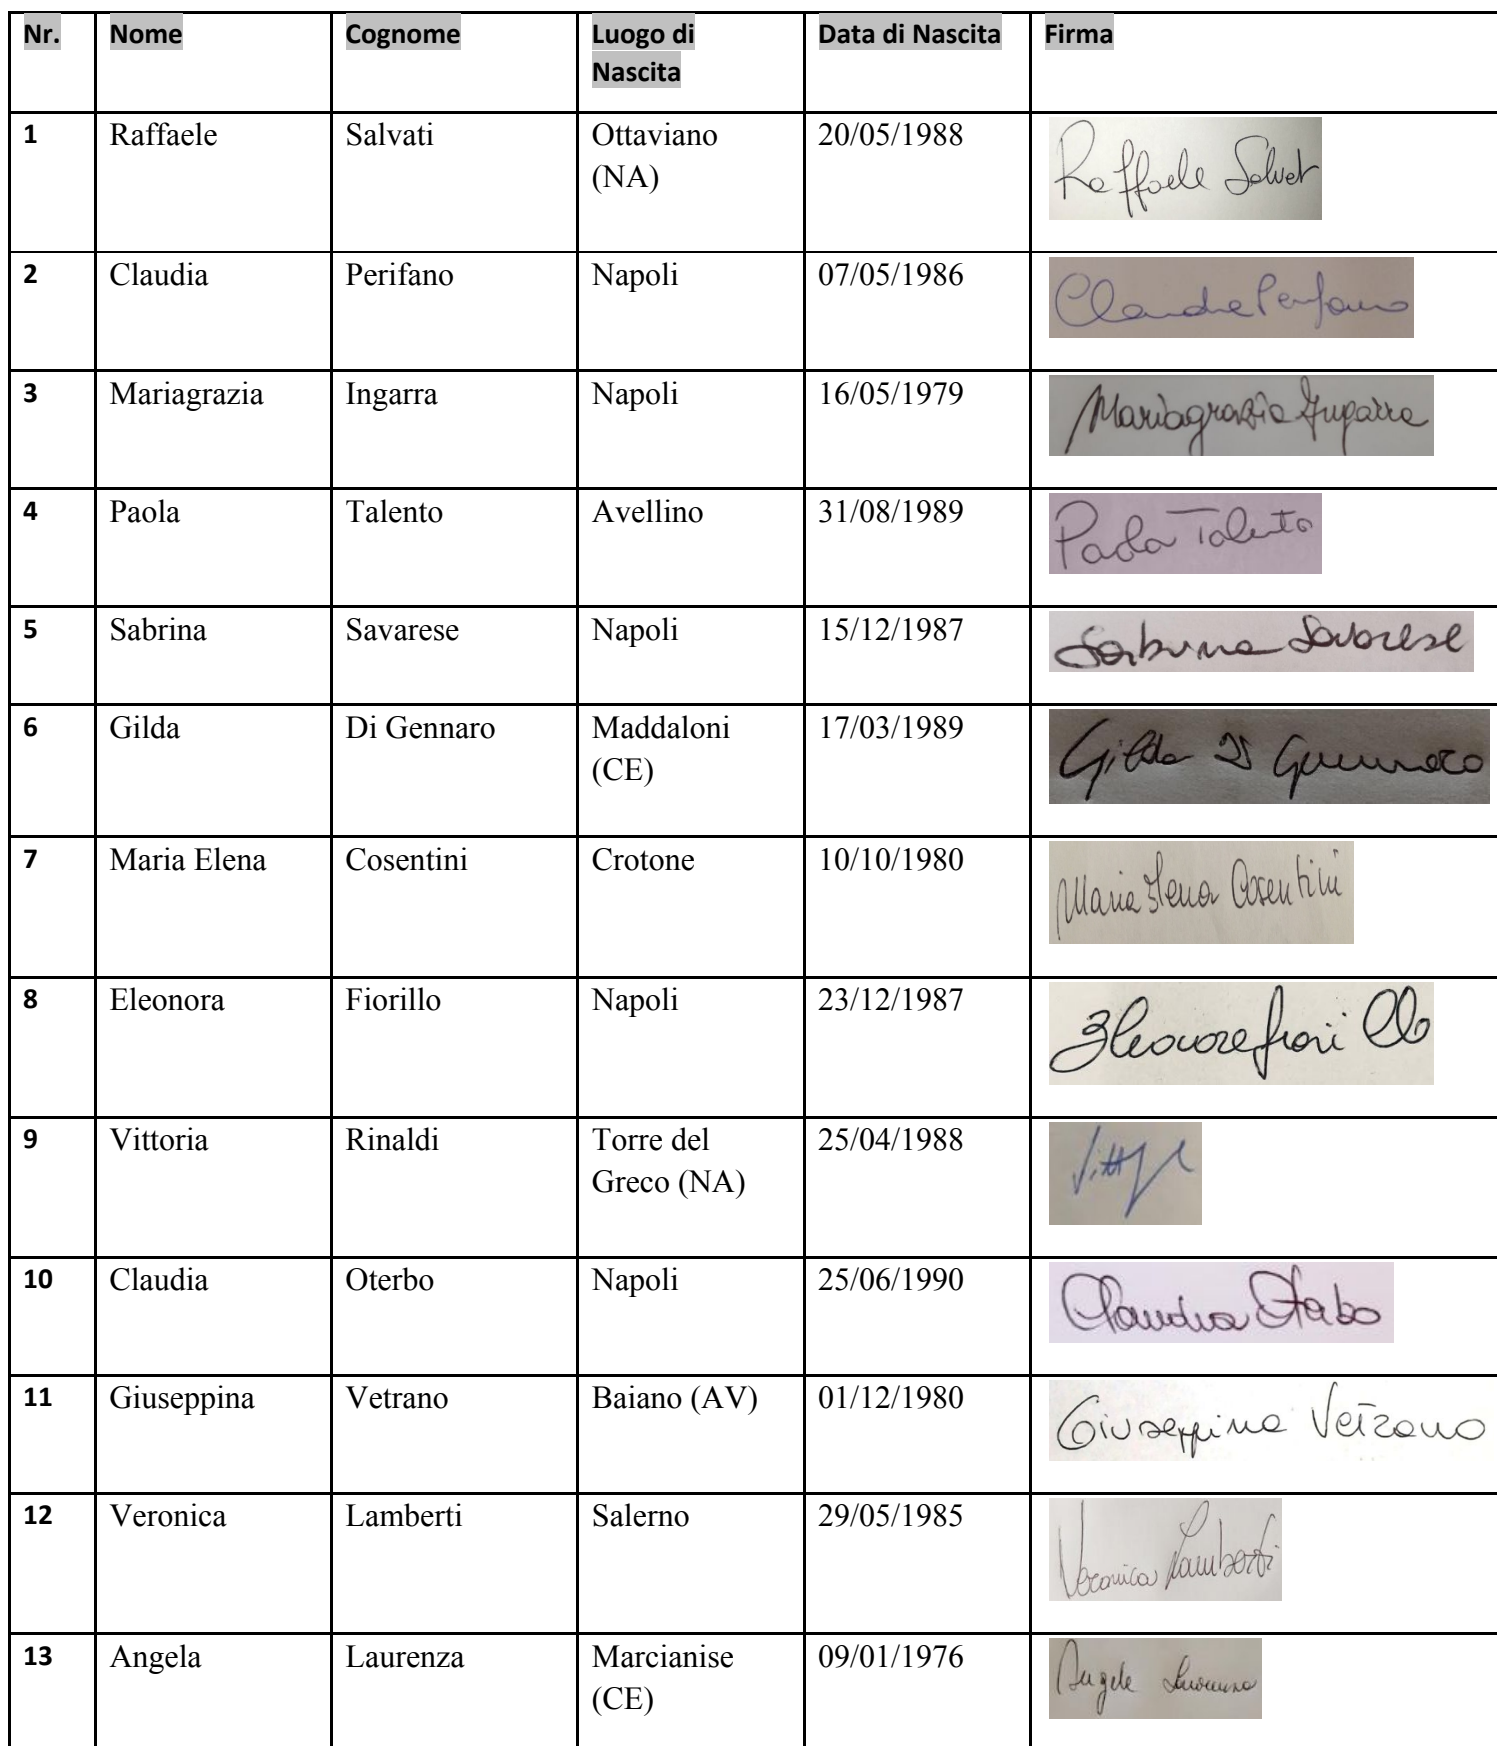 Nr. Nome Cognome Luogo di Nascita Data di Nascita Firma
1 Raffaele Salvati Ottaviano (NA) 20/05/1988 Raffaele Salvat
2 Claudia Perifano Napoli 07/05/1986 Claudia Perifano
3 Mariagrazia Ingarra Napoli 16/05/1979 Mariagrazia Ingarra
4 Paola Talento Avellino 31/08/1989 Paola Talento
5 Sabrina Savarese Napoli 15/12/1987 Sabrina Savarese
6 Gilda Di Gennaro Maddaloni (CE) 17/03/1989 Gilda Di Gennaro
7 Maria Elena Cosentini Crotone 10/10/1980 Maria Elena Cosentini
8 Eleonora Fiorillo Napoli 23/12/1987 Eleonora Fiorillo
9 Vittoria Rinaldi Torre del Greco (NA) 25/04/1988
10 Claudia Oterbo Napoli 25/06/1990 Claudia Oterbo
11 Giuseppina Vetrano Baiano (AV) 01/12/1980 Giuseppina Vetrano
12 Veronica Lamberti Salerno 29/05/1985 Veronica Lamberti
13 Angela Laurenza Marcianise (CE) 09/01/1976 Angela Laurenza